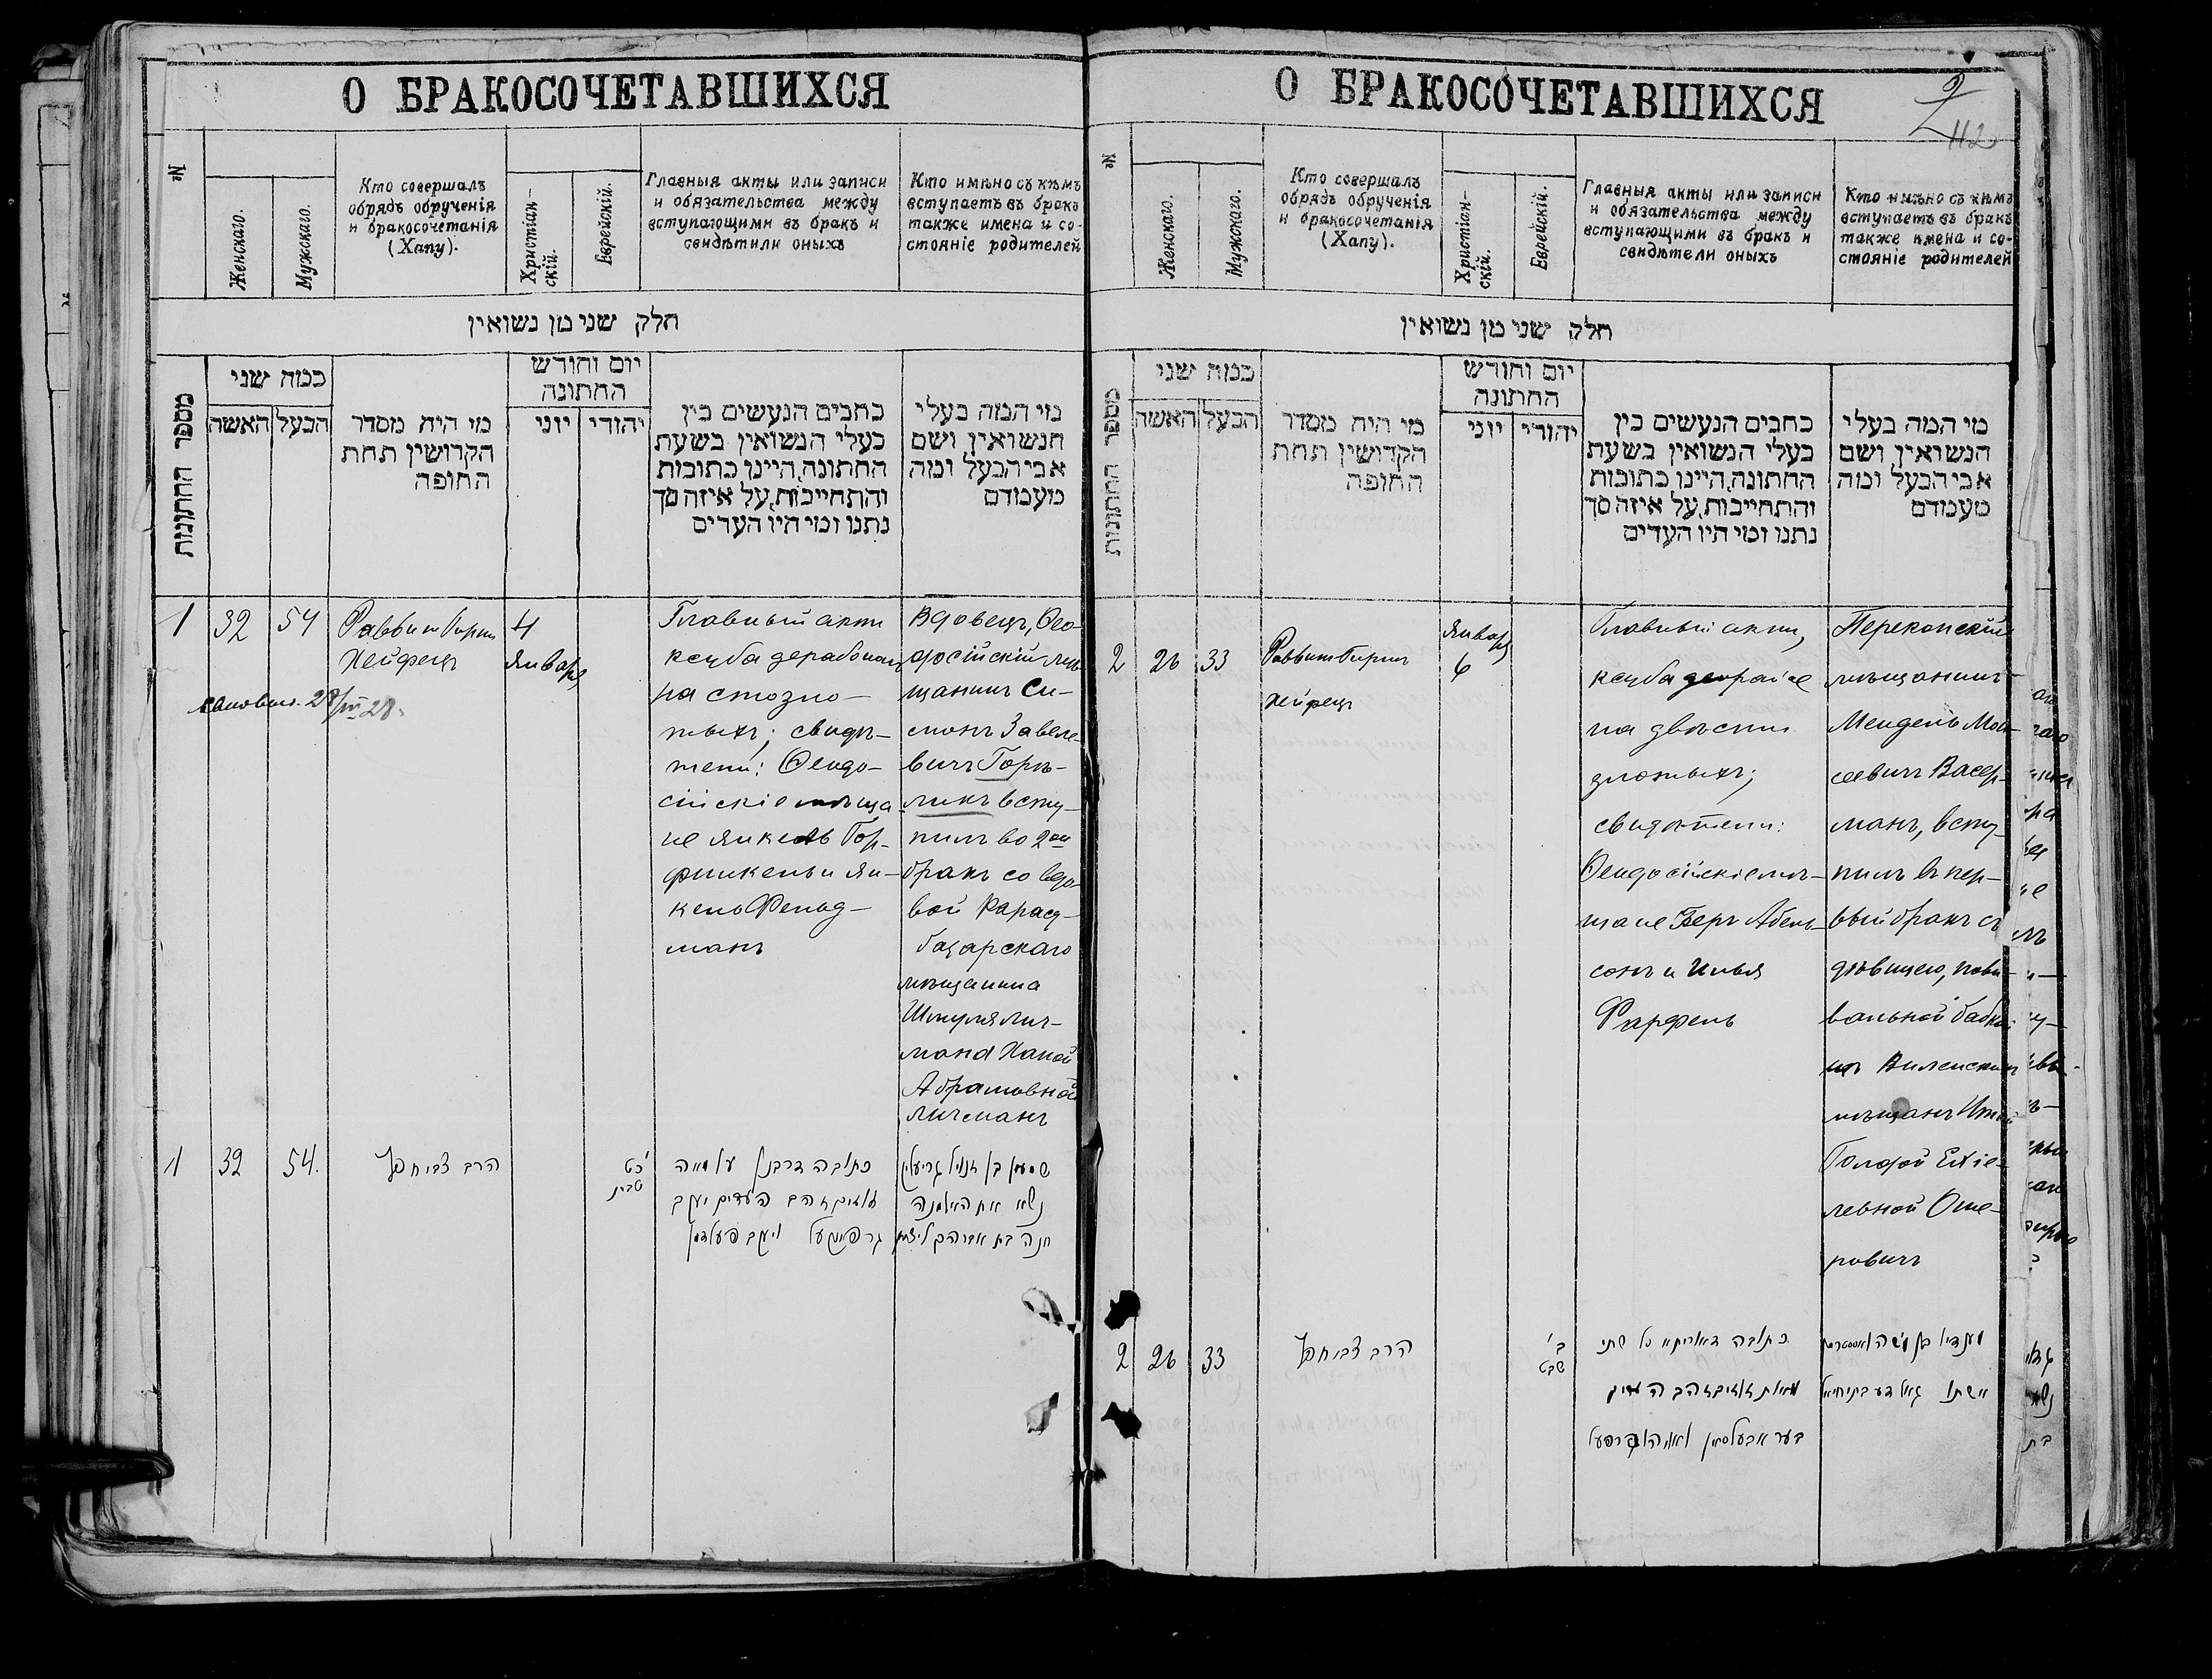 О БРАКОСОЧЕТАВШИХСЯ
№
Женскаго.
Мужскаго.
Кто совершалъ
обрядъ обрученія
и бракосочетанія
(Хапу).
Христіан-
скій.
Еврейскій.
Главныя акты или записи
и обязательства между
вступающими въ бракъ и
свидѣтили оныхъ
Кто имѣно съ кѣмъ
вступаетъ въ бракъ
также имена и со-
стояніе родителей
חלק שני מן נשואין
מספר החתונות
כמה שני
האשה
הבעל
מי היה מסדר
הקדושין תחת
החופה
יום וחודש
החתונה
יוני
יהודי
כתבים הנעשים בין
בעלי הנשואין בשעת
החתונה היינו כתובות
והתחייבות על איזה סך
נתנו ומי היו העדים
מי המה בעלי
הנשואין ושם
אבי הבעל ומה
מעמדם
1
32
54
Раввинъ Гиршъ
Хейфецъ
4
Январь
Главный актъ
ксуба дерабонанъ
на сто зло-
тыхъ; свидѣ-
тели: Ѳеодо-
сійскіе мѣща-
не Янкель Гор-
финкель и Ян-
кель Фельд-
манъ
Вдовецъ, Ѳео-
досійскій мѣ-
щанинъ Си-
монъ Завеле-
вичъ Горѣ-
ликъ всту-
пилъ во 2ой
бракъ со вдо-
вой Карасу-
базарскаго
мѣщанина
Шмуля Лич-
мана Ханой
Абрамовной
Личманъ
1
32
54.
הרב צבי חפץ
כ"ט
טבת
כתובה דרבנן על מאה
זהובים העדים יעקב
גרפינקעל ויעקב פעלדמן
שמעון בן זאוויל גריעליק
נשא את האלמנה
חנה בת אברהם ליצמאן
О БРАКОСОЧЕТАВШИХСЯ
2
112
№
Женскаго.
Мужскаго.
Кто совершалъ
обрядъ обрученія
и бракосочетанія
(Хапу).
Христіан-
скій.
Еврейскій.
Главныя акты или записи
и обязательства между
вступающими въ бракъ и
свидѣтели оныхъ
Кто имѣно съ кѣмъ
вступаетъ въ бракъ
также имена и со-
стояніе родителей
חלק שני מן נשואין
מספר החתונות
כמה שני
האשה
הבעל
מי היה מסדר
הקדושין תחת
החופה
יום וחודש
החתונה
יוני
יהודי
כתבים הנעשים בין
בעלי הנשואין בשעת
החתונה היינו כתובות
והתחייבות על איזה סך
נתנו ומי היו העדים
מי המה בעלי
הנשואין ושם
אבי הבעל ומה
מעמדם
2
26
33
Раввинъ Гиршъ
Хейфецъ
Январь
6
Главный актъ,
ксуба деорайсе
на двѣсти
злотыхъ;
свидѣтели:
Ѳеодосійскіе мѣ-
щане Беръ Абель-
сонъ и Илья
Фарфель
Перекопскій
мѣщанинъ
Мендель Мои-
сеевичъ Васер-
манъ, всту-
пилъ въ пер-
вый бракъ съ
дѣвицею, пови-
вальной бабкой
изъ Виленскихъ
мѣщанъ
Голдой Ехіе-
левной Оше-
ровичъ
2
26
33
הרב צבי חפץ
ב'
שבט
כתובה דאוריתא על שתי
מאות זהובים העדים
בער אבעלסאן ואליהו פרפעל
מענדיל בן משה וואסערמאן
אשתו גאלדע בת יחיאל